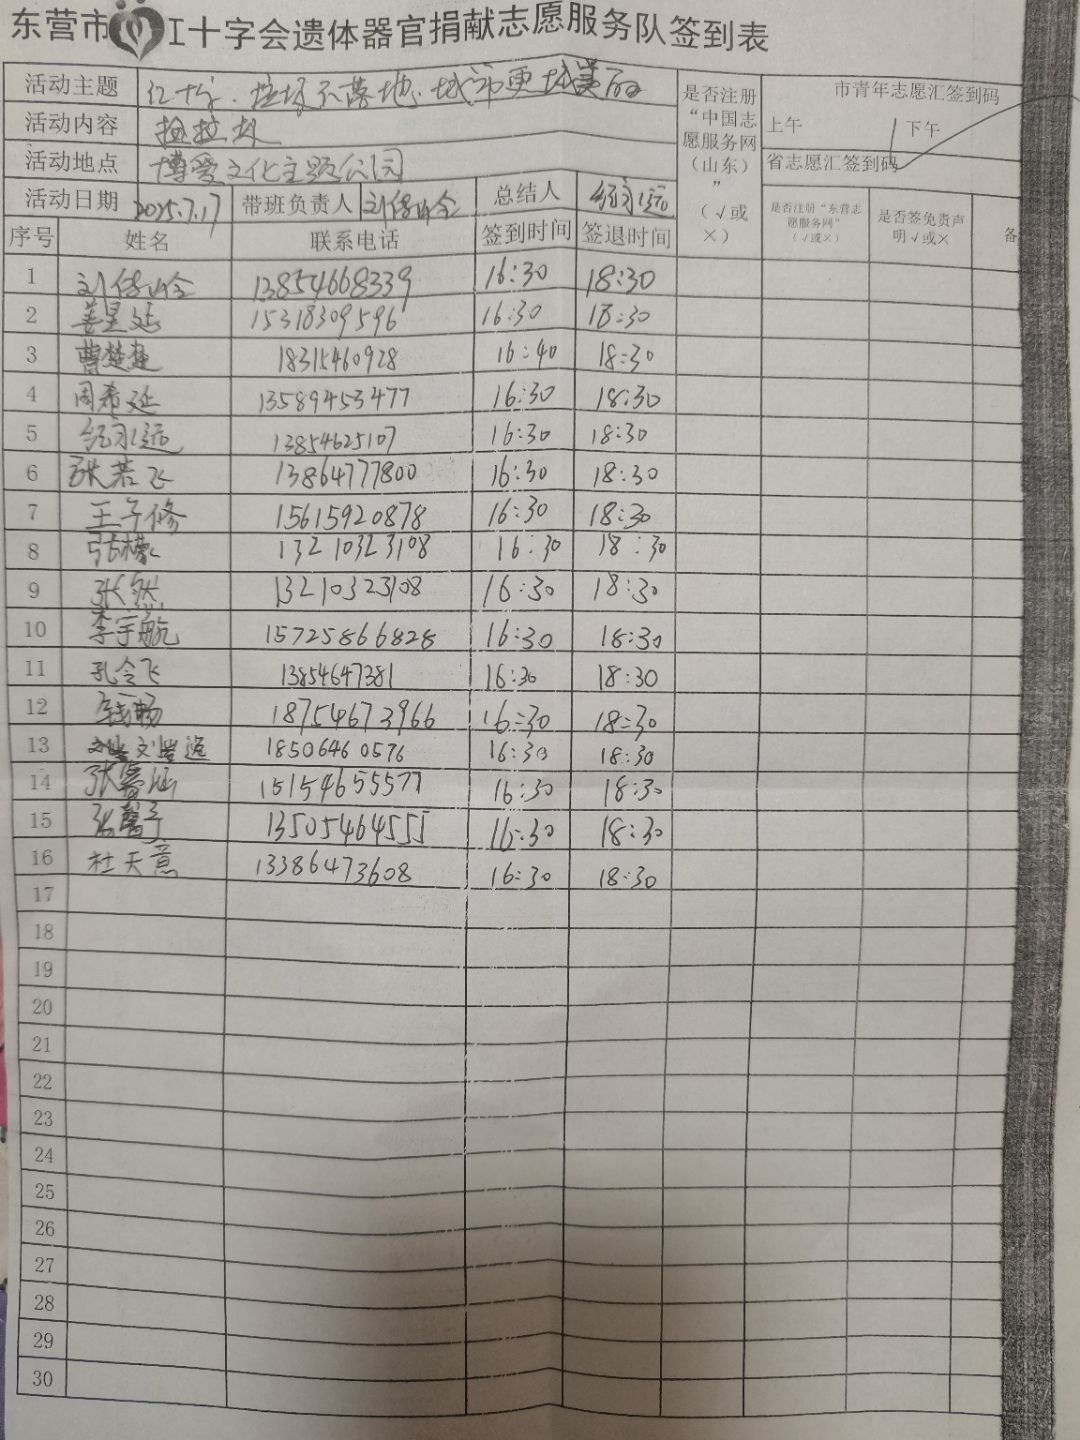 东营市红十字会遗体器官捐献志愿服务队签到表
活动主题 红十字·垃圾不落地·城市更加美丽
活动内容 捡垃圾
活动地点 博爱文化主题公园
活动日期 2025.7.17 带班负责人 总结人 纪永远
是否注册“中国志愿服务网（山东）”（√或×）
市青年志愿汇签到码
上午 下午
省志愿汇签到码
是否注册“东营志愿服务网”（√或×）
是否签免责声明√或×
备
序号 姓名 联系电话 签到时间 签退时间
1 13854668339 16:30 18:30
2 姜星延 15318309596 16:30 18:30
3 曹楚 18315460928 16:40 18:30
4 周希延 13589453477 16:30 18:30
5 纪永远 13854625107 16:30 18:30
6 张若飞 13864777800 16:30 18:30
7 王子修 15615920878 16:30 18:30
8 张 13210323108 16:30 18:30
9 张然 13210323108 16:30 18:30
10 李宇航 15725866828 16:30 18:30
11 孔令飞 13854647381 16:30 18:30
12 钱畅 18754673966 16:30 18:30
13 18506460576 16:30 18:30
14 张睿涵 15154655577 16:30 18:30
15 13505464555 16:30 18:30
16 杜天意 13386473608 16:30 18:30
17
18
19
20
21
22
23
24
25
26
27
28
29
30